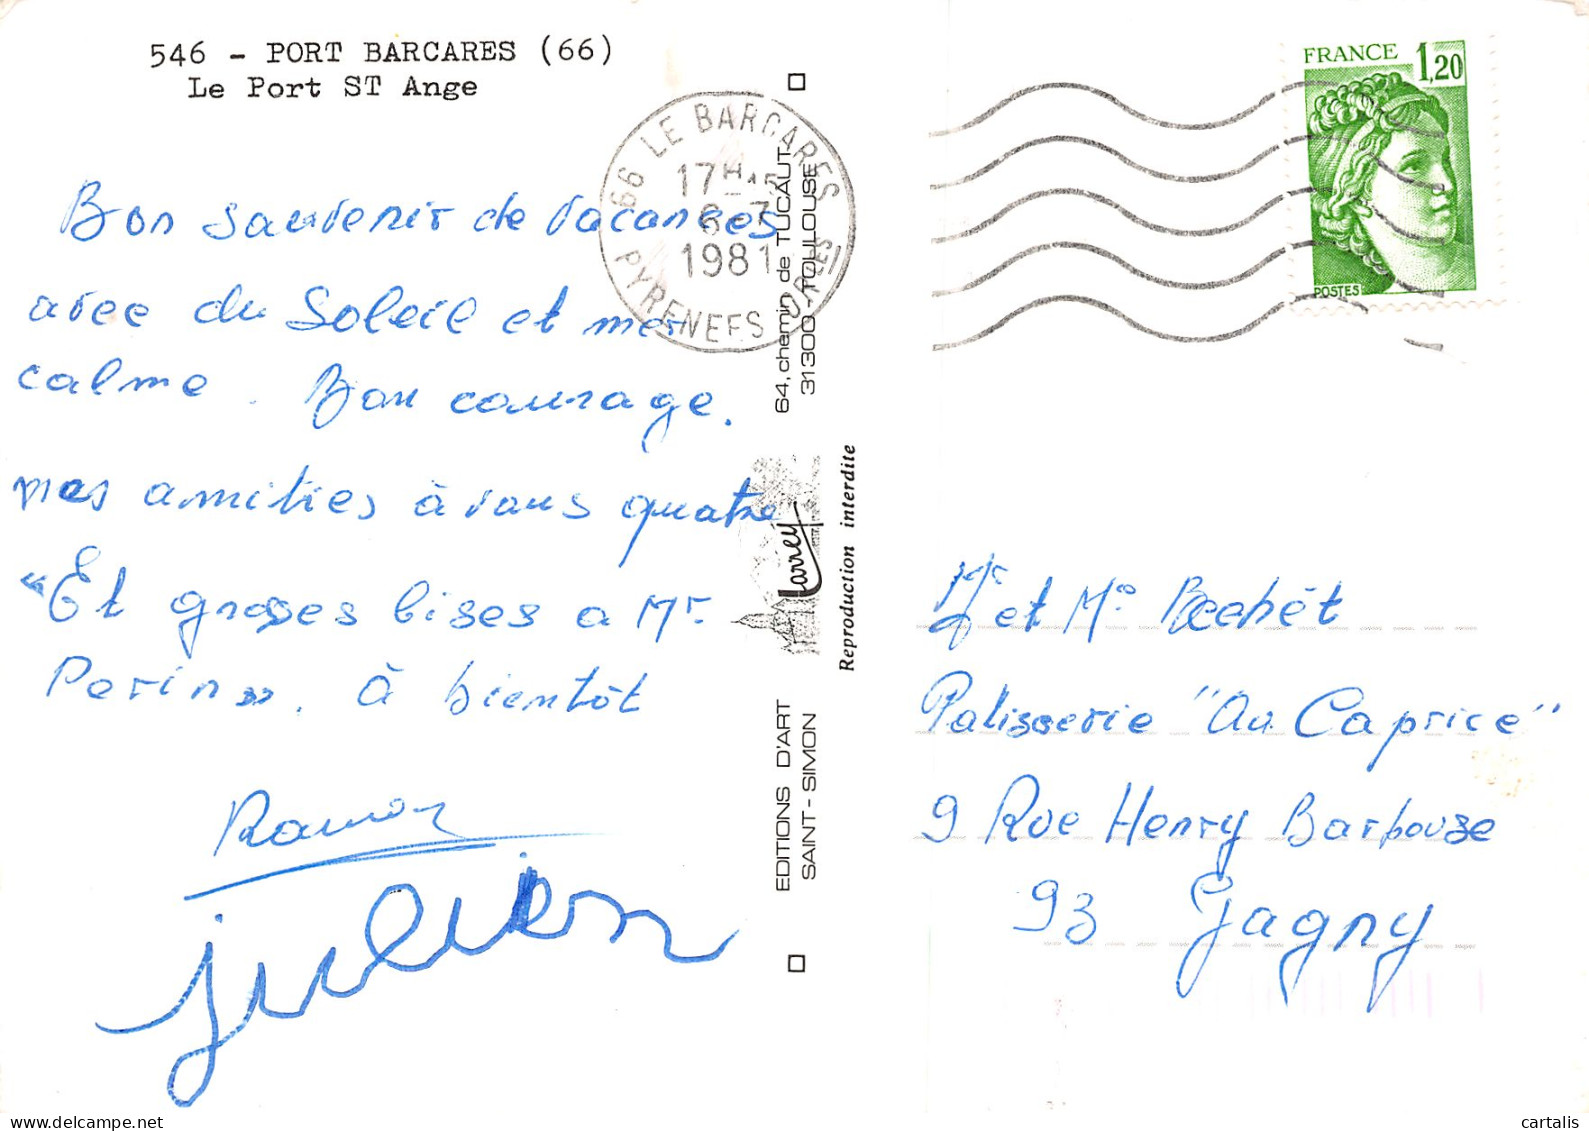 546 - PORT BARCARES (66)
Le Port ST Ange
Bon souvenir de vacances
avec du Soleil et mer
calme. Bon courage.
mes amitiés à vous quatre
"Et groses bises a Mr
Perin". à bientôt
Ramon
julien
66 LE BARCARES
17H 15
6-7
1981
PYRENEES OR LES
64, chemin de TUCAUT
31300 - TOULOUSE
Larrey
Reproduction interdite
EDITIONS D'ART
SAINT-SIMON
FRANCE 1,20
POSTES
Mr et Me Bechêt
Patisserie "Au Caprice"
9 Rue Henry Barbousse
93 Gagny
cartalis
www.delcampe.net